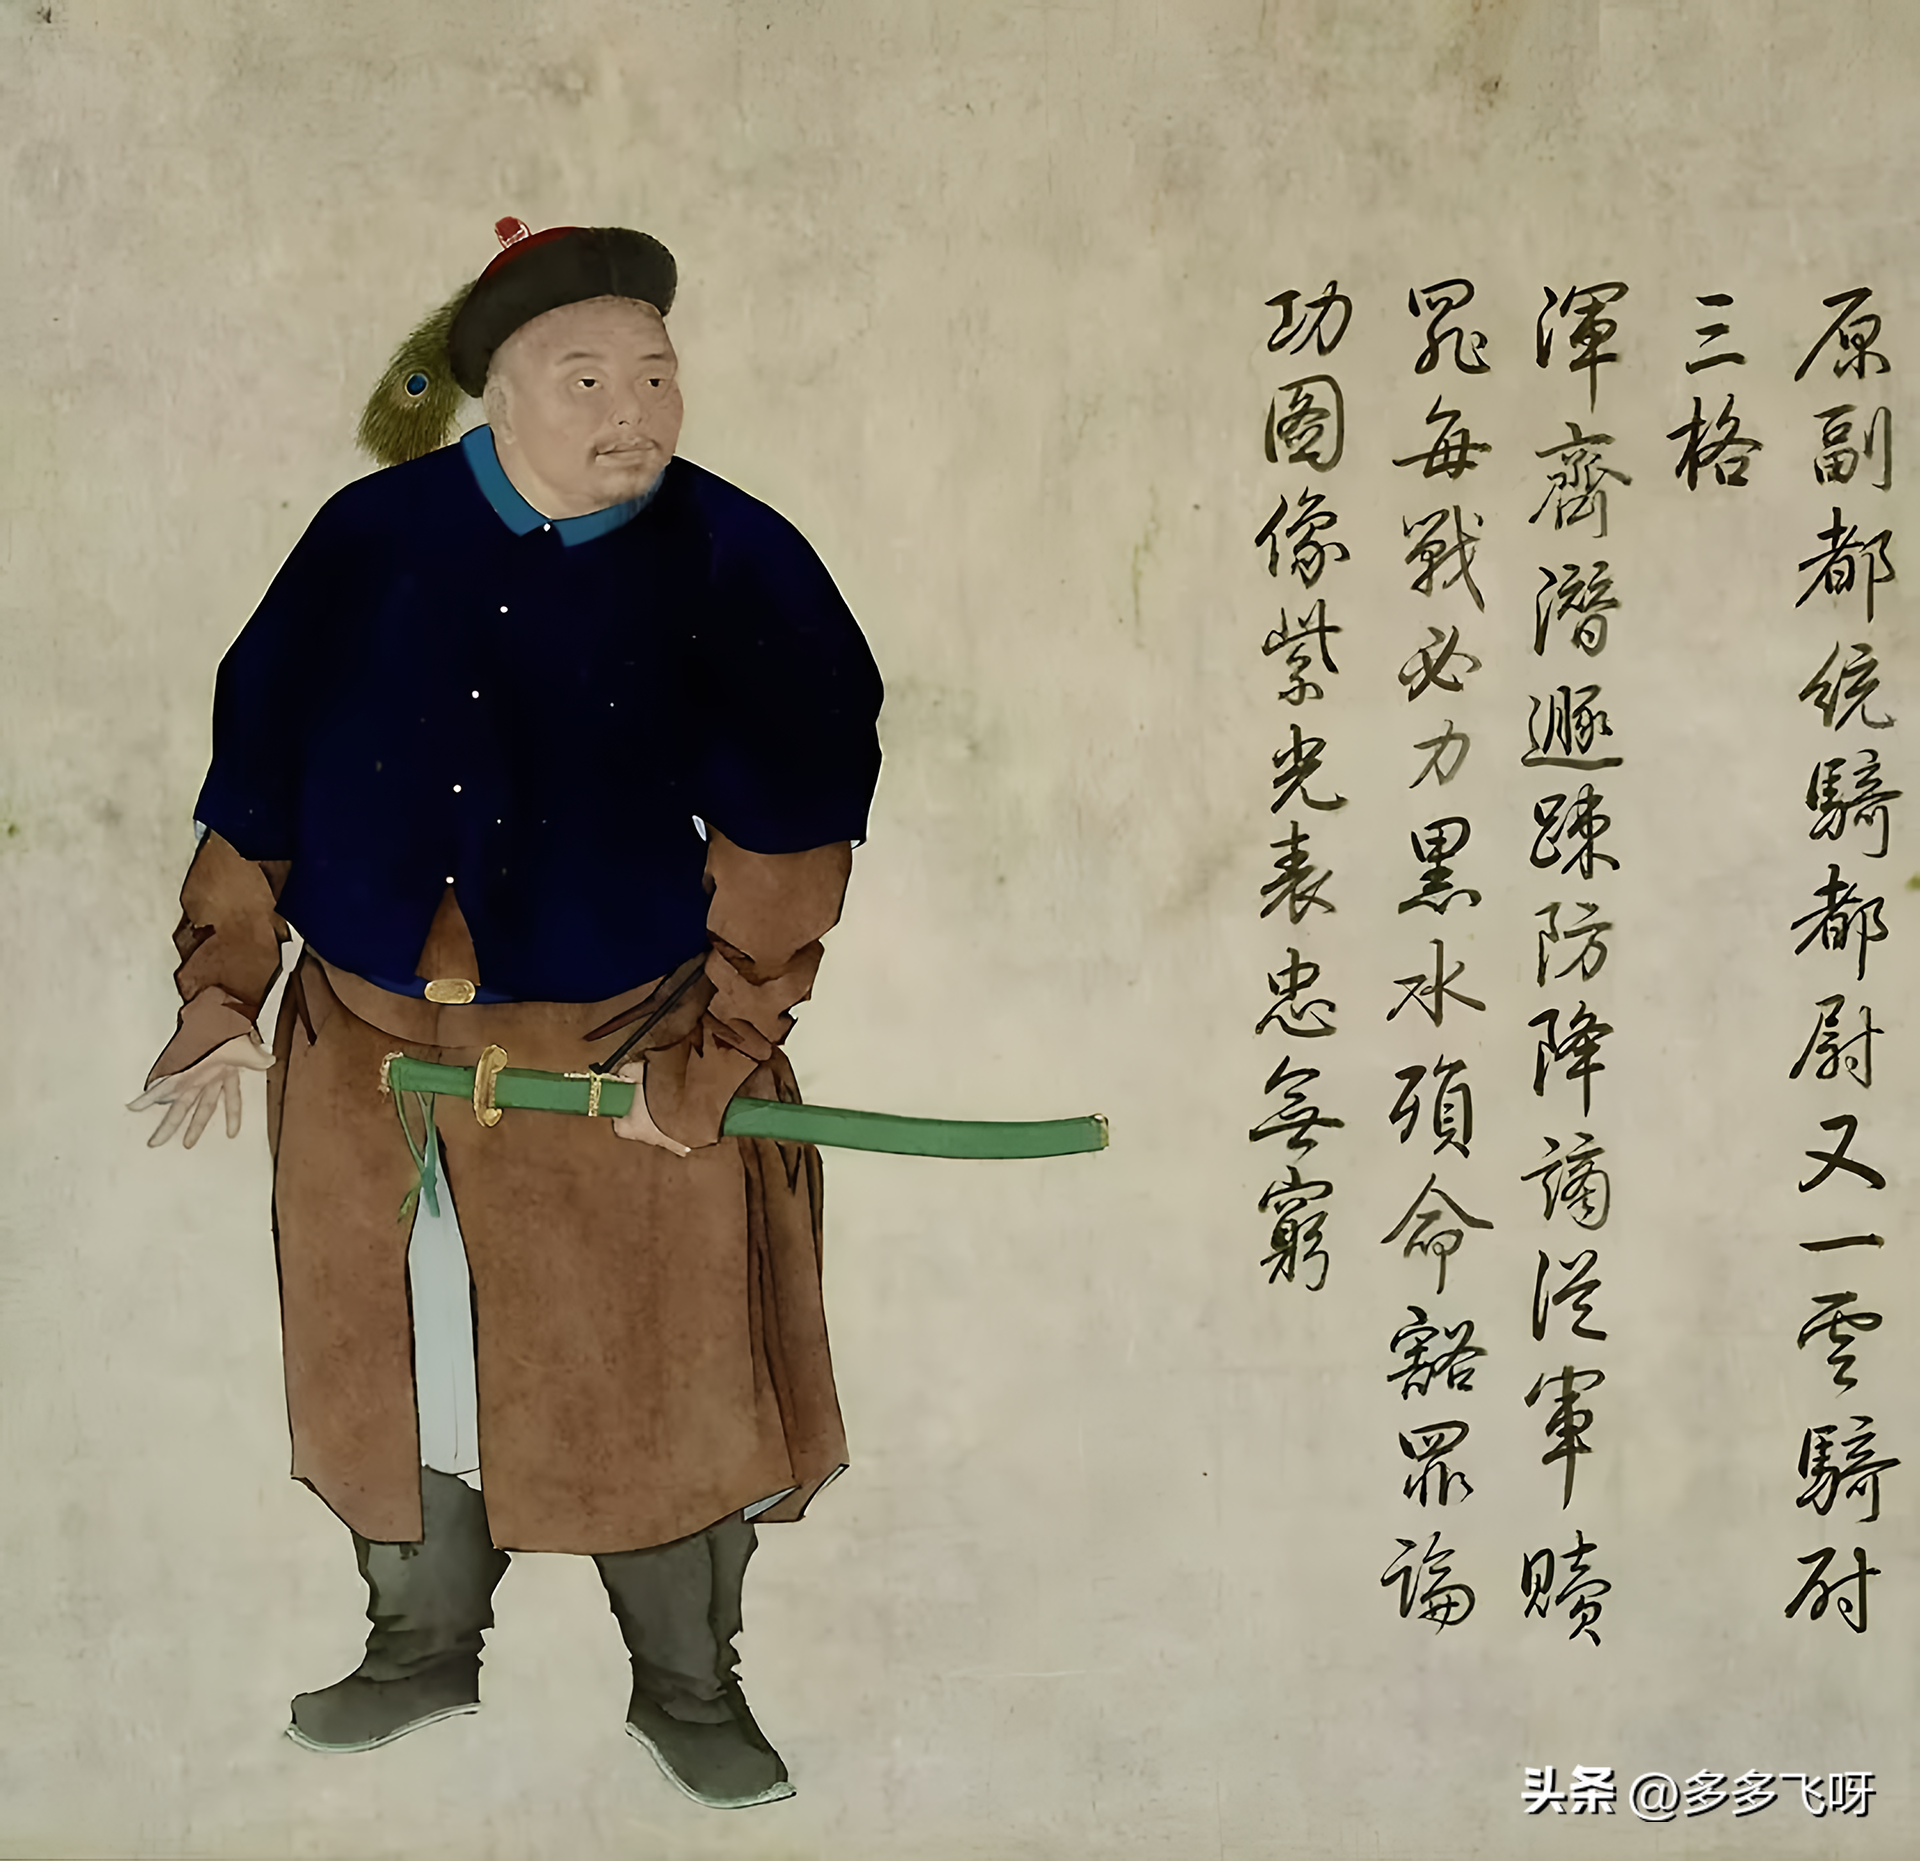 原副都統騎都尉又一雲騎尉
三格
渾齊潛遯踈防降謫從軍贖
罪每戰必力黒水殞命豁罪論
功圖像紫光表忠無窮
头条 @多多飞呀